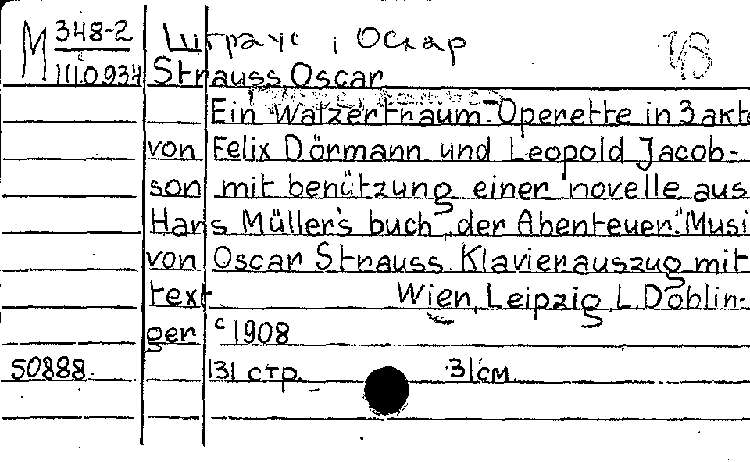 М 348-2 Штраус, Оскар
III.0.934 Strauss Oscar
Ein Walzertraum. Operette in 3 akte
von Felix Dörmann und Leopold Jacob-
son mit benützung einer novelle aus
Hans Müller's buch „der Abenteuer." Musi
von Oscar Strauss. Klavierauszug mit
text Wien, Leipzig, L. Döblin-
ger c 1908
50888. 131 стр. 31см